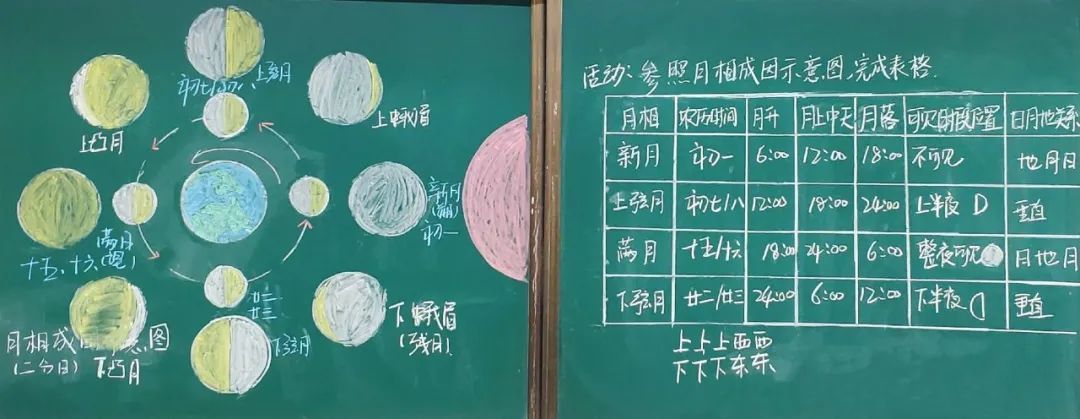 初七/初八
上弦月
上凸月
上蛾眉
新月
(朔)
初一
满月
十五、十六(望)
廿二
廿三
下蛾眉
(残月)
下弦月
月相成因示意图
(二分日)
下凸月
活动:参照月相成因示意图,完成表格.
月相 农历时间 月升 月上中天 月落 可见时段位置 日月地关系
新月 初一 6:00 12:00 18:00 不可见 地月日
上弦月 初七/八 12:00 18:00 24:00 上半夜 垂直
满月 十五/十六 18:00 24:00 6:00 整夜可见 日地月
下弦月 廿二/廿三 24:00 6:00 12:00 下半夜 垂直
上上上西西
下下下东东